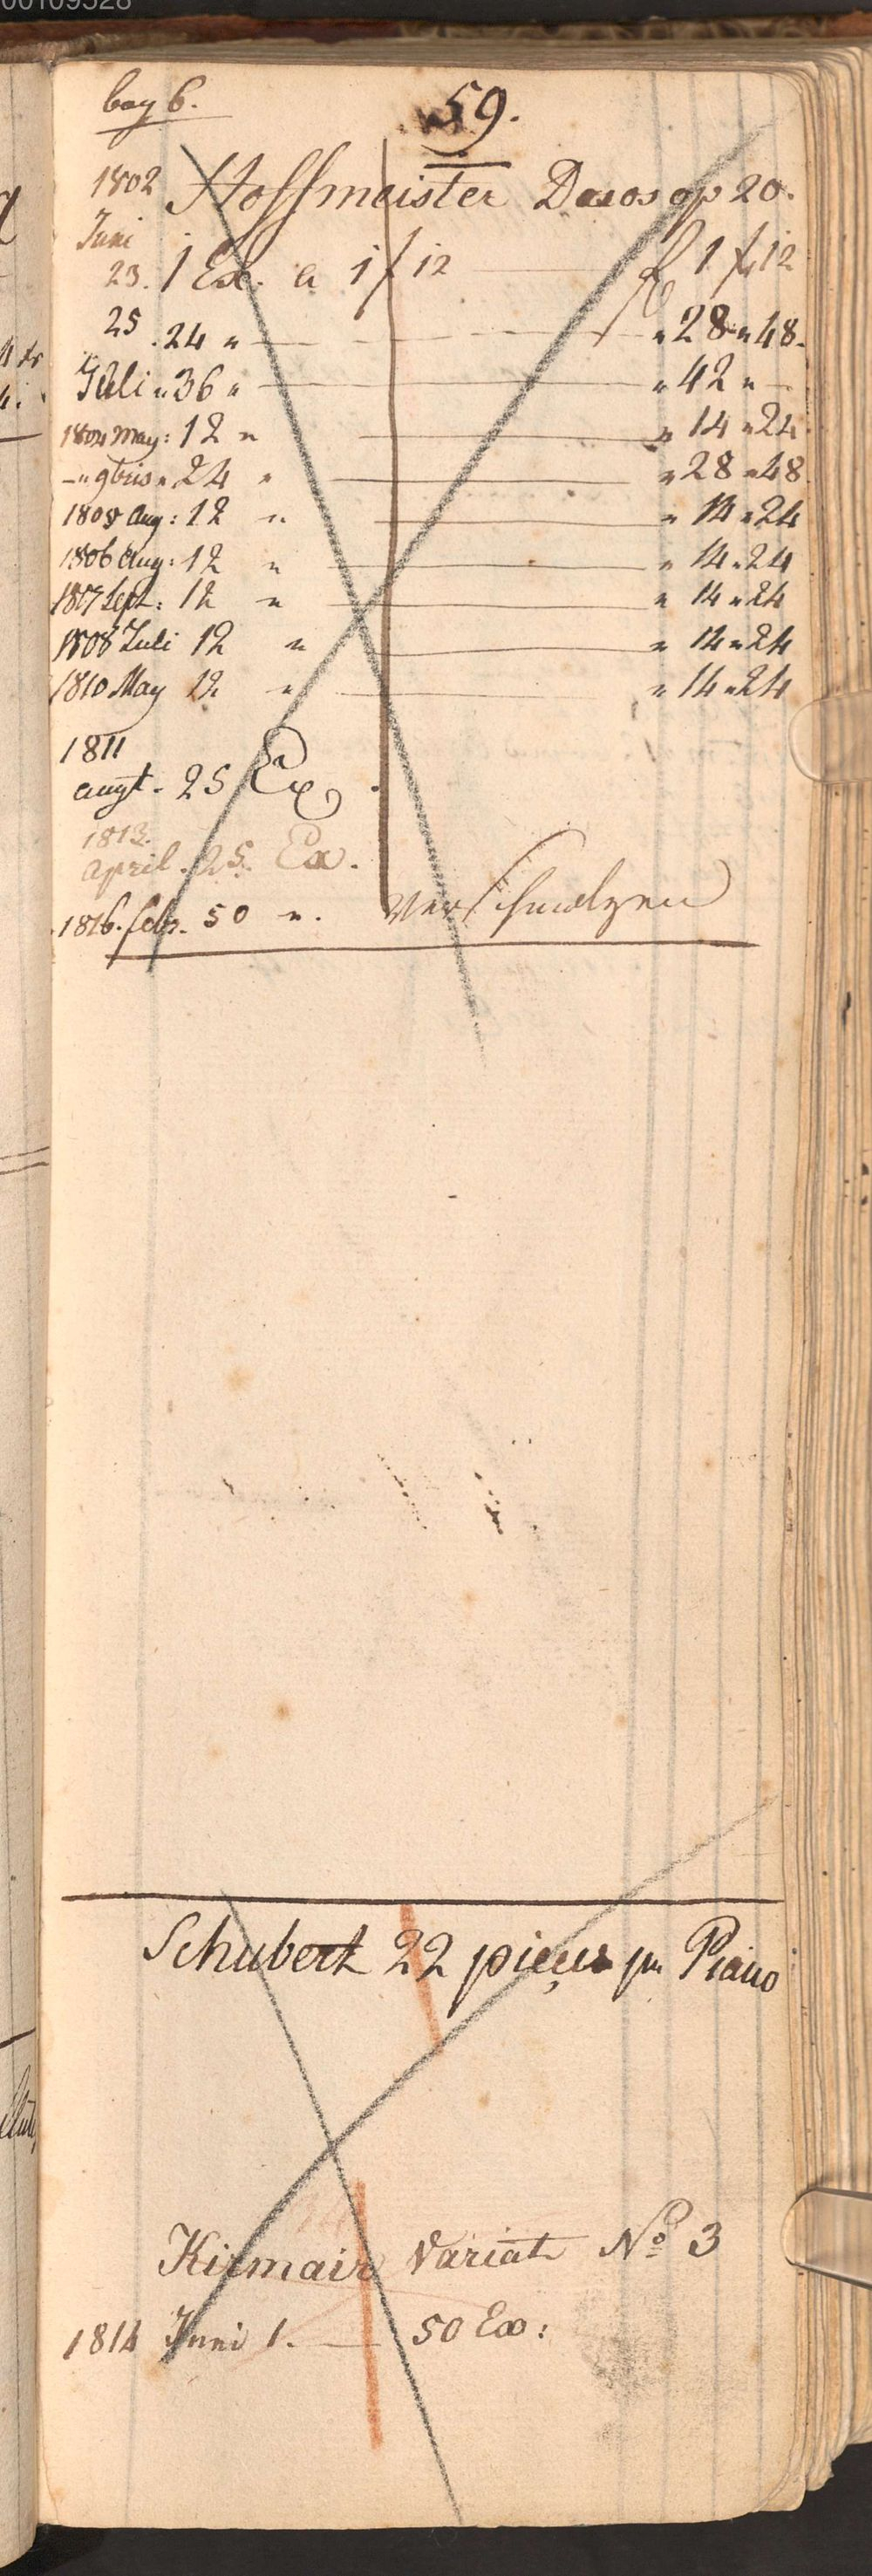 00109528
bog 6.
59.
1802 Hoffmeister Duos op 20.
Juni
23. 1 Ex. a 1f 12 f 1 f 12
25 . 24 " " 28 " 48.
Juli " 36 " " 42 " -
1804 May: 12 " " 14 " 24
- " 9bris " 24 " " 28 " 48
1805 Aug: 12 " " 14 " 24
1806 Aug: 12 " " 14 " 24
1807 Sept: 12 " " 14 " 24
1808 Juli 12 " " 14 " 24
1810 May 12 " " 14 " 24
1811
augt. 25 Ex.
1813.
april. 25. Ex.
1816. febr. 50 ". Verschmolzen
Schubert 22 pieçes pr Piano
Kirmair Variat No 3
1814 Juni 1. — 50 Ex: